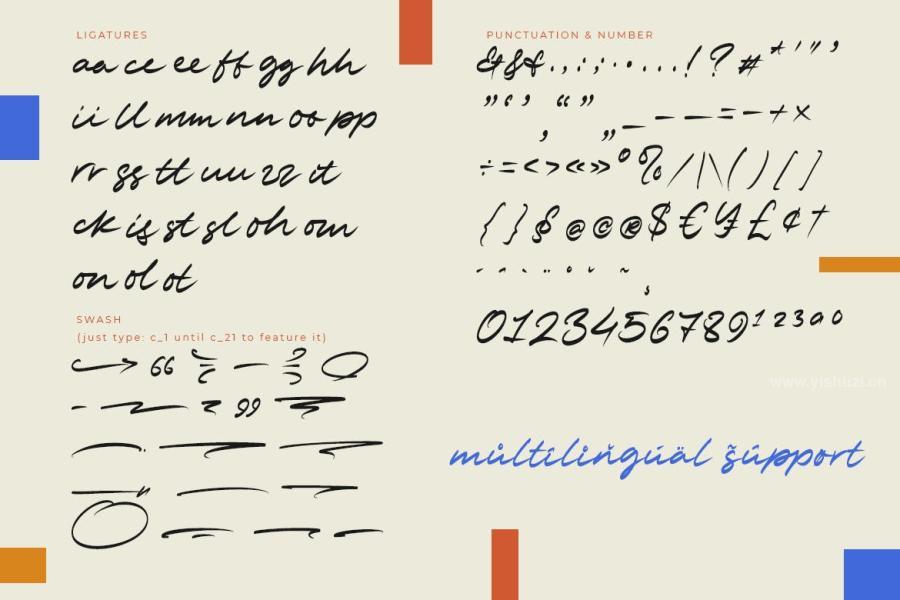 LIGATURES
aa cc ee ff gg hh
ii ll mm nn oo pp
rr ss tt uu zz it
ck is st sl oh om
on ol ot
SWASH
(just type: c_1 until c_21 to feature it)
66
99
PUNCTUATION & NUMBER
& & & . , : ; · • … ! ? # * ' " ’
” ‘ ’ , “ ” „ _ – — – = – + ×
÷ = < > « » ° % / | \ ( ) [ ]
{ } § @ © ® $ € ¥ £ ¢ †
0123456789 1 2 3 a o
www.yishuzi.cn
můltiliňgúäl s̃ūpport